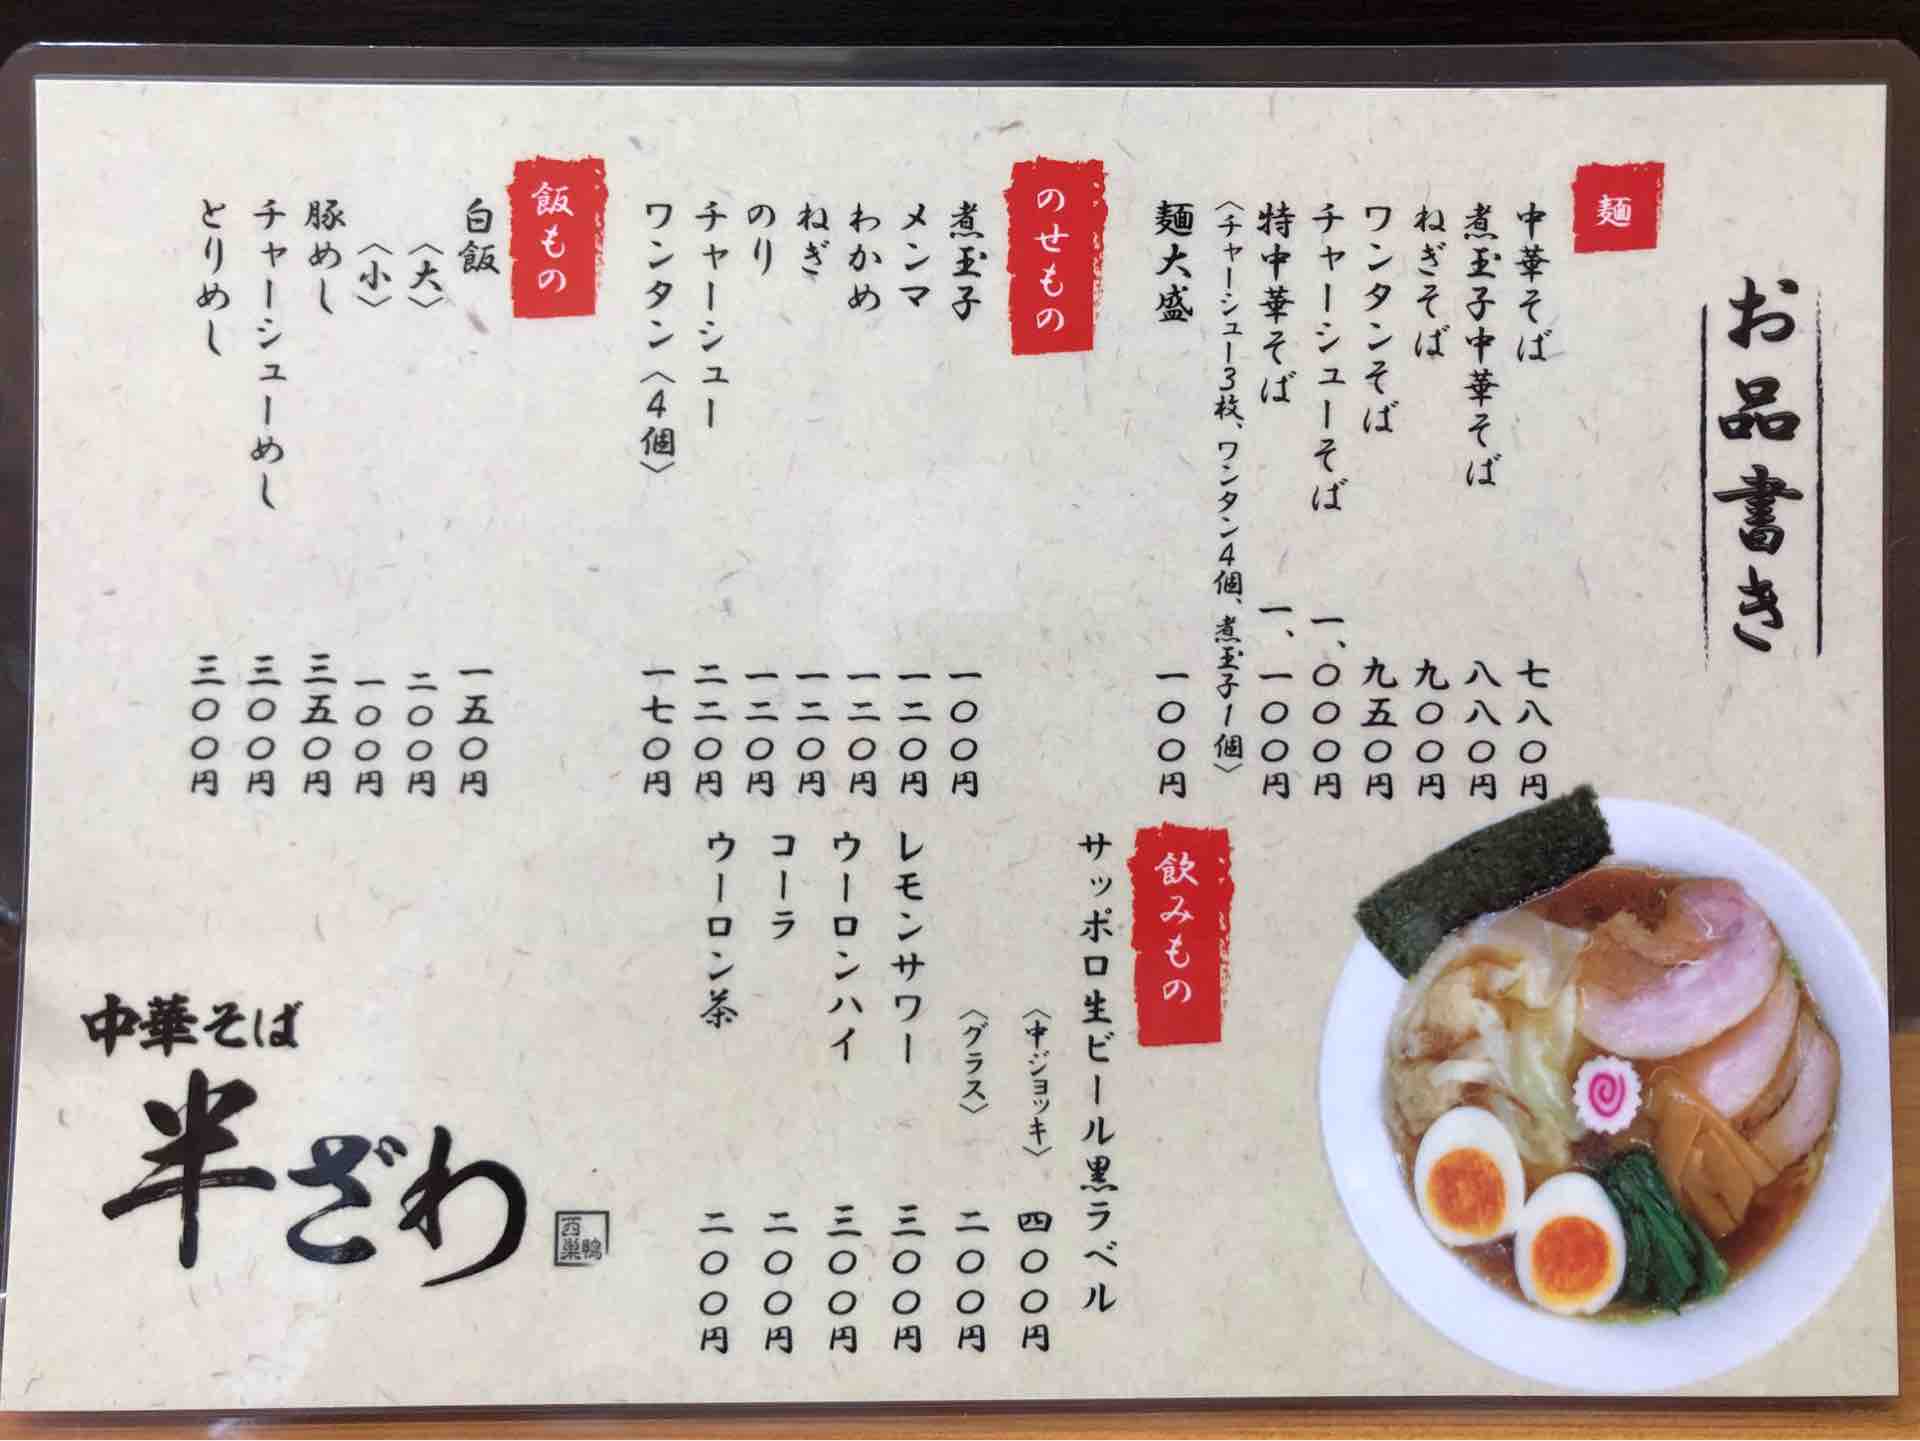 お品書き
麺
中華そば 七八〇円
煮玉子中華そば 八八〇円
ねぎそば 九〇〇円
ワンタンそば 九五〇円
チャーシューそば 一、〇〇〇円
特中華そば 一、一〇〇円
〈チャーシュー3枚、ワンタン4個、煮玉子1個〉
麺大盛 一〇〇円
のせもの
煮玉子 一〇〇円
メンマ 一二〇円
わかめ 一二〇円
ねぎ 一二〇円
のり 一二〇円
チャーシュー 二二〇円
ワンタン〈4個〉 一七〇円
飯もの
白飯 一五〇円
〈大〉 二〇〇円
〈小〉 一〇〇円
豚めし 三五〇円
チャーシューめし 三〇〇円
とりめし 三〇〇円
飲みもの
サッポロ生ビール黒ラベル
〈中ジョッキ〉 四〇〇円
〈グラス〉 二〇〇円
レモンサワー 三〇〇円
ウーロンハイ 三〇〇円
コーラ 二〇〇円
ウーロン茶 二〇〇円
中華そば
半ざわ
西巣鴨